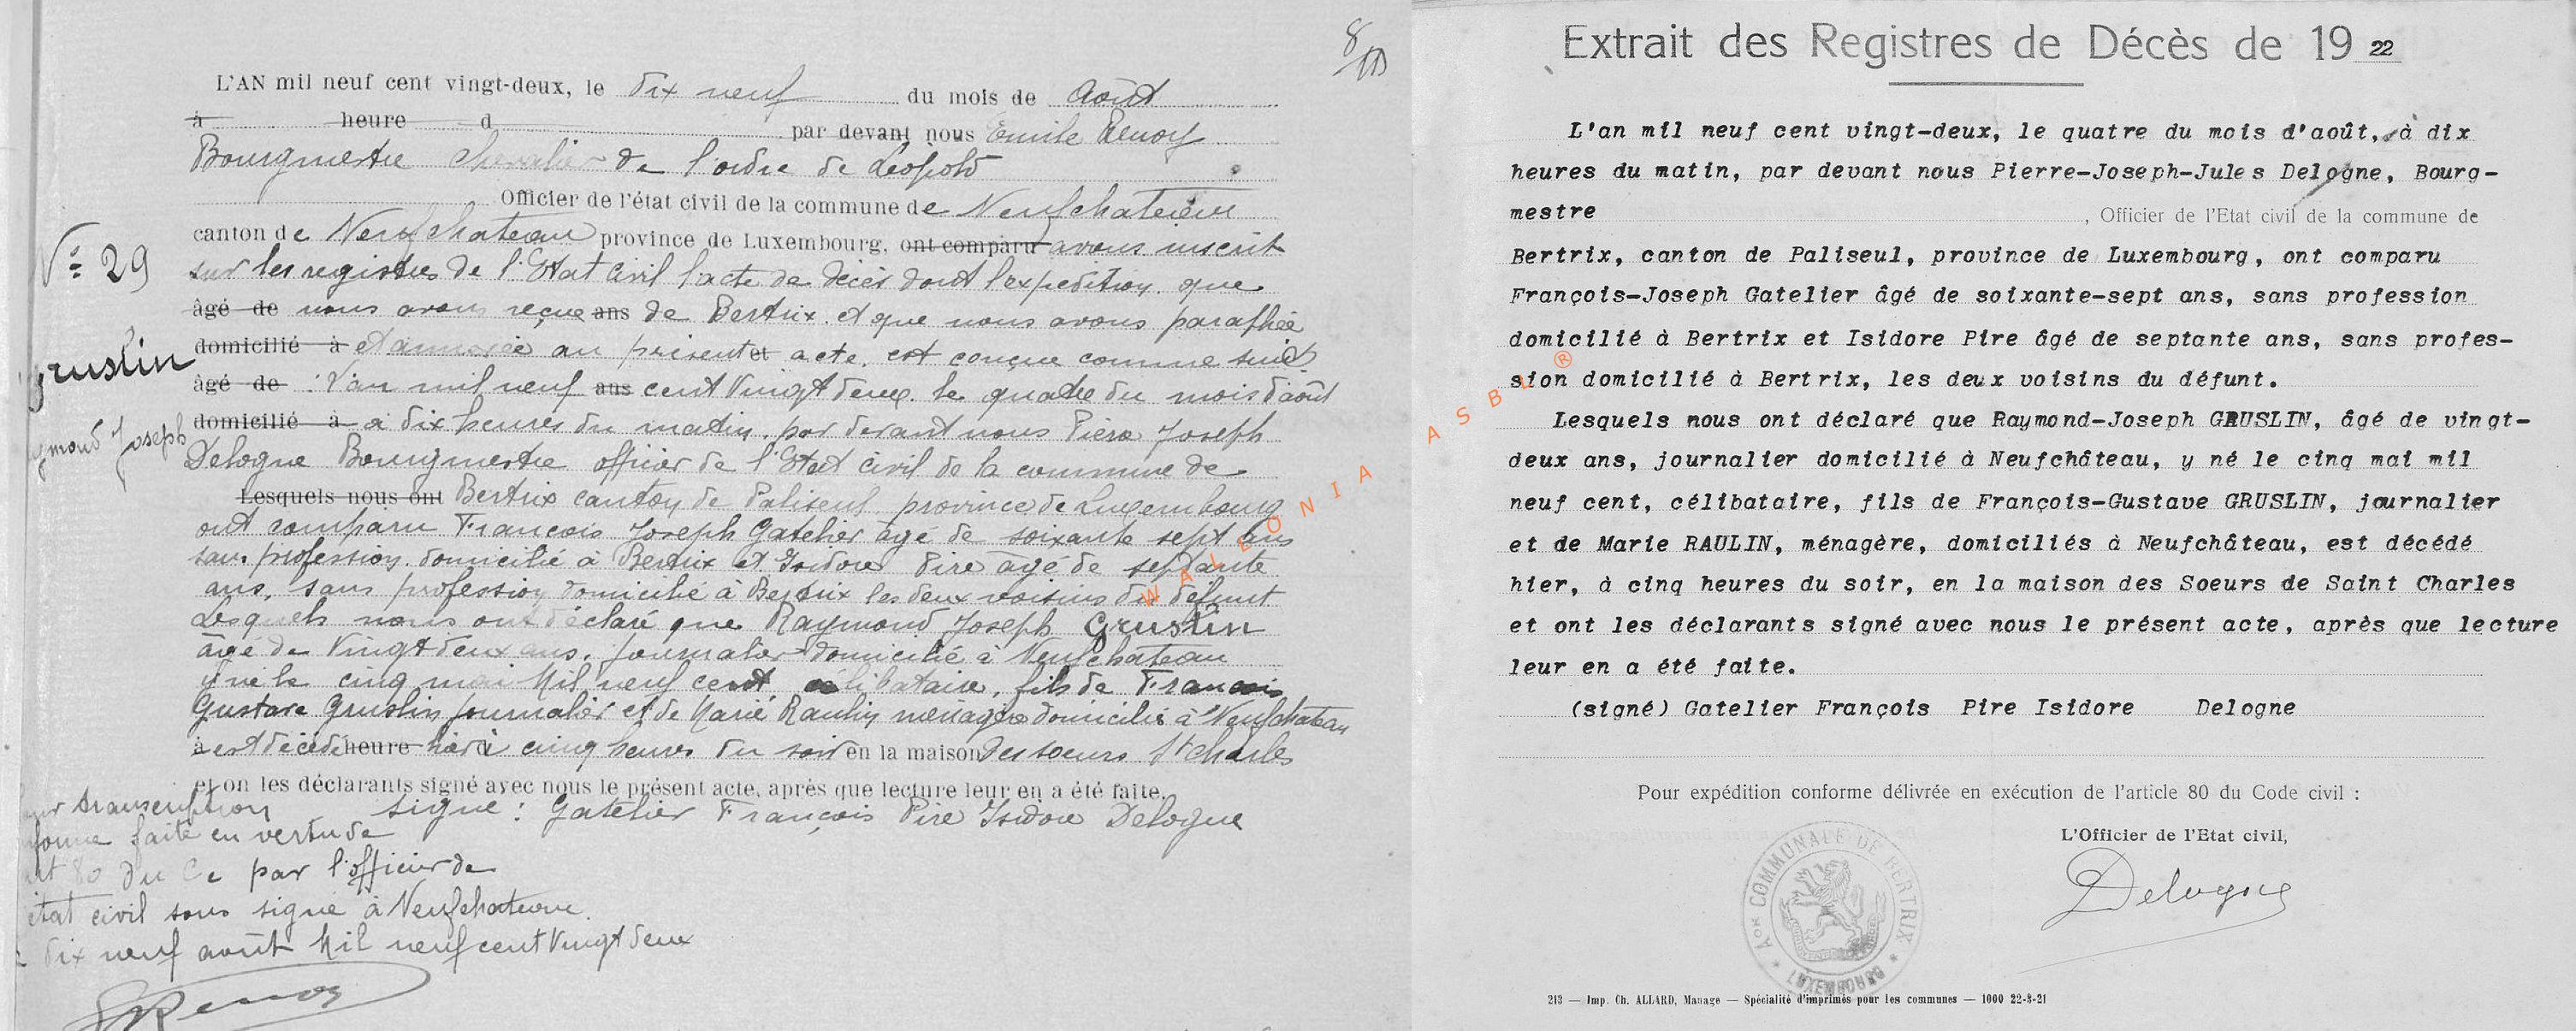 8
L'AN mil neuf cent vingt-deux, le dix neuf du mois de Août
à heure d par devant nous Emile
Bourgmestre Chevalier de l'ordre de Léopold
Officier de l'état civil de la commune de Neufchateau
canton de Neufchateau province de Luxembourg, ont comparu avons inscrit
sur les registres de l'Etat Civil l'acte de décès dont l'expedition que
âgé de nous avons reçue ans de Bertrix et que nous avons paraphée
domicilié à et annexée au présent et acte est conçue comme suit
âgé de : L'an mil neuf ans cent vingt deux le quatre du mois d'août
domicilié à à dix heures du matin, par devant nous Pierre Joseph
Delogne Bourgmestre officier de l'Etat civil de la commune de
Lesquels nous ont Bertrix canton de Paliseul province de Luxembourg
ont comparu Francois Joseph Gatelier âgé de soixante sept ans
sans profession domicilié à Bertrix et Isidore Pire âgé de septante
ans, sans profession domicilié à Bertrix les deux voisins du défunt
Lesquels nous ont déclaré que Raymond Joseph Gruslin
âgé de Vingt deux ans, journalier domicilié à Neufchateau
y né le cinq mai Mil neuf cent célibataire, fils de Francois
Gustave Gruslin journalier et de Marie Raulin ménagère domiciliés à Neufchateau
à est décédé heure hier à cinq heures du soir en la maison des soeurs St Charles
et on les déclarants signé avec nous le présent acte, après que lecture leur en a été faite.
signé : Gatelier François Pire Isidore Delogne
N° 29
Gruslin
Joseph
transcription
faite en vertu de
80 du Cc par l'officier de
état civil sous signé à Neufchateau
dix neuf août Mil neuf cent vingt deux
WALLONIA ASBL ®
Extrait des Registres de Décès de 1922
L'an mil neuf cent vingt-deux, le quatre du mois d'août, à dix
heures du matin, par devant nous Pierre-Joseph-Jules Delogne, Bourg-
mestre , Officier de l'Etat civil de la commune de
Bertrix, canton de Paliseul, province de Luxembourg, ont comparu
François-Joseph Gatelier âgé de soixante-sept ans, sans profession
domicilié à Bertrix et Isidore Pire âgé de septante ans, sans profes-
sion domicilié à Bertrix, les deux voisins du défunt.
Lesquels nous ont déclaré que Raymond-Joseph GRUSLIN, âgé de vingt-
deux ans, journalier domicilié à Neufchâteau, y né le cinq mai mil
neuf cent, célibataire, fils de François-Gustave GRUSLIN, journalier
et de Marie RAULIN, ménagère, domiciliés à Neufchâteau, est décédé
hier, à cinq heures du soir, en la maison des Soeurs de Saint Charles
et ont les déclarants signé avec nous le présent acte, après que lecture
leur en a été faite.
(signé) Gatelier François Pire Isidore Delogne
Pour expédition conforme délivrée en exécution de l'article 80 du Code civil :
L'Officier de l'Etat civil,
Delogne
Aon COMMUNALE DE BERTRIX
LUXEMBOURG
213 — Imp. Ch. ALLARD, Manage — Spécialité d'imprimés pour les communes — 1000 22-8-21